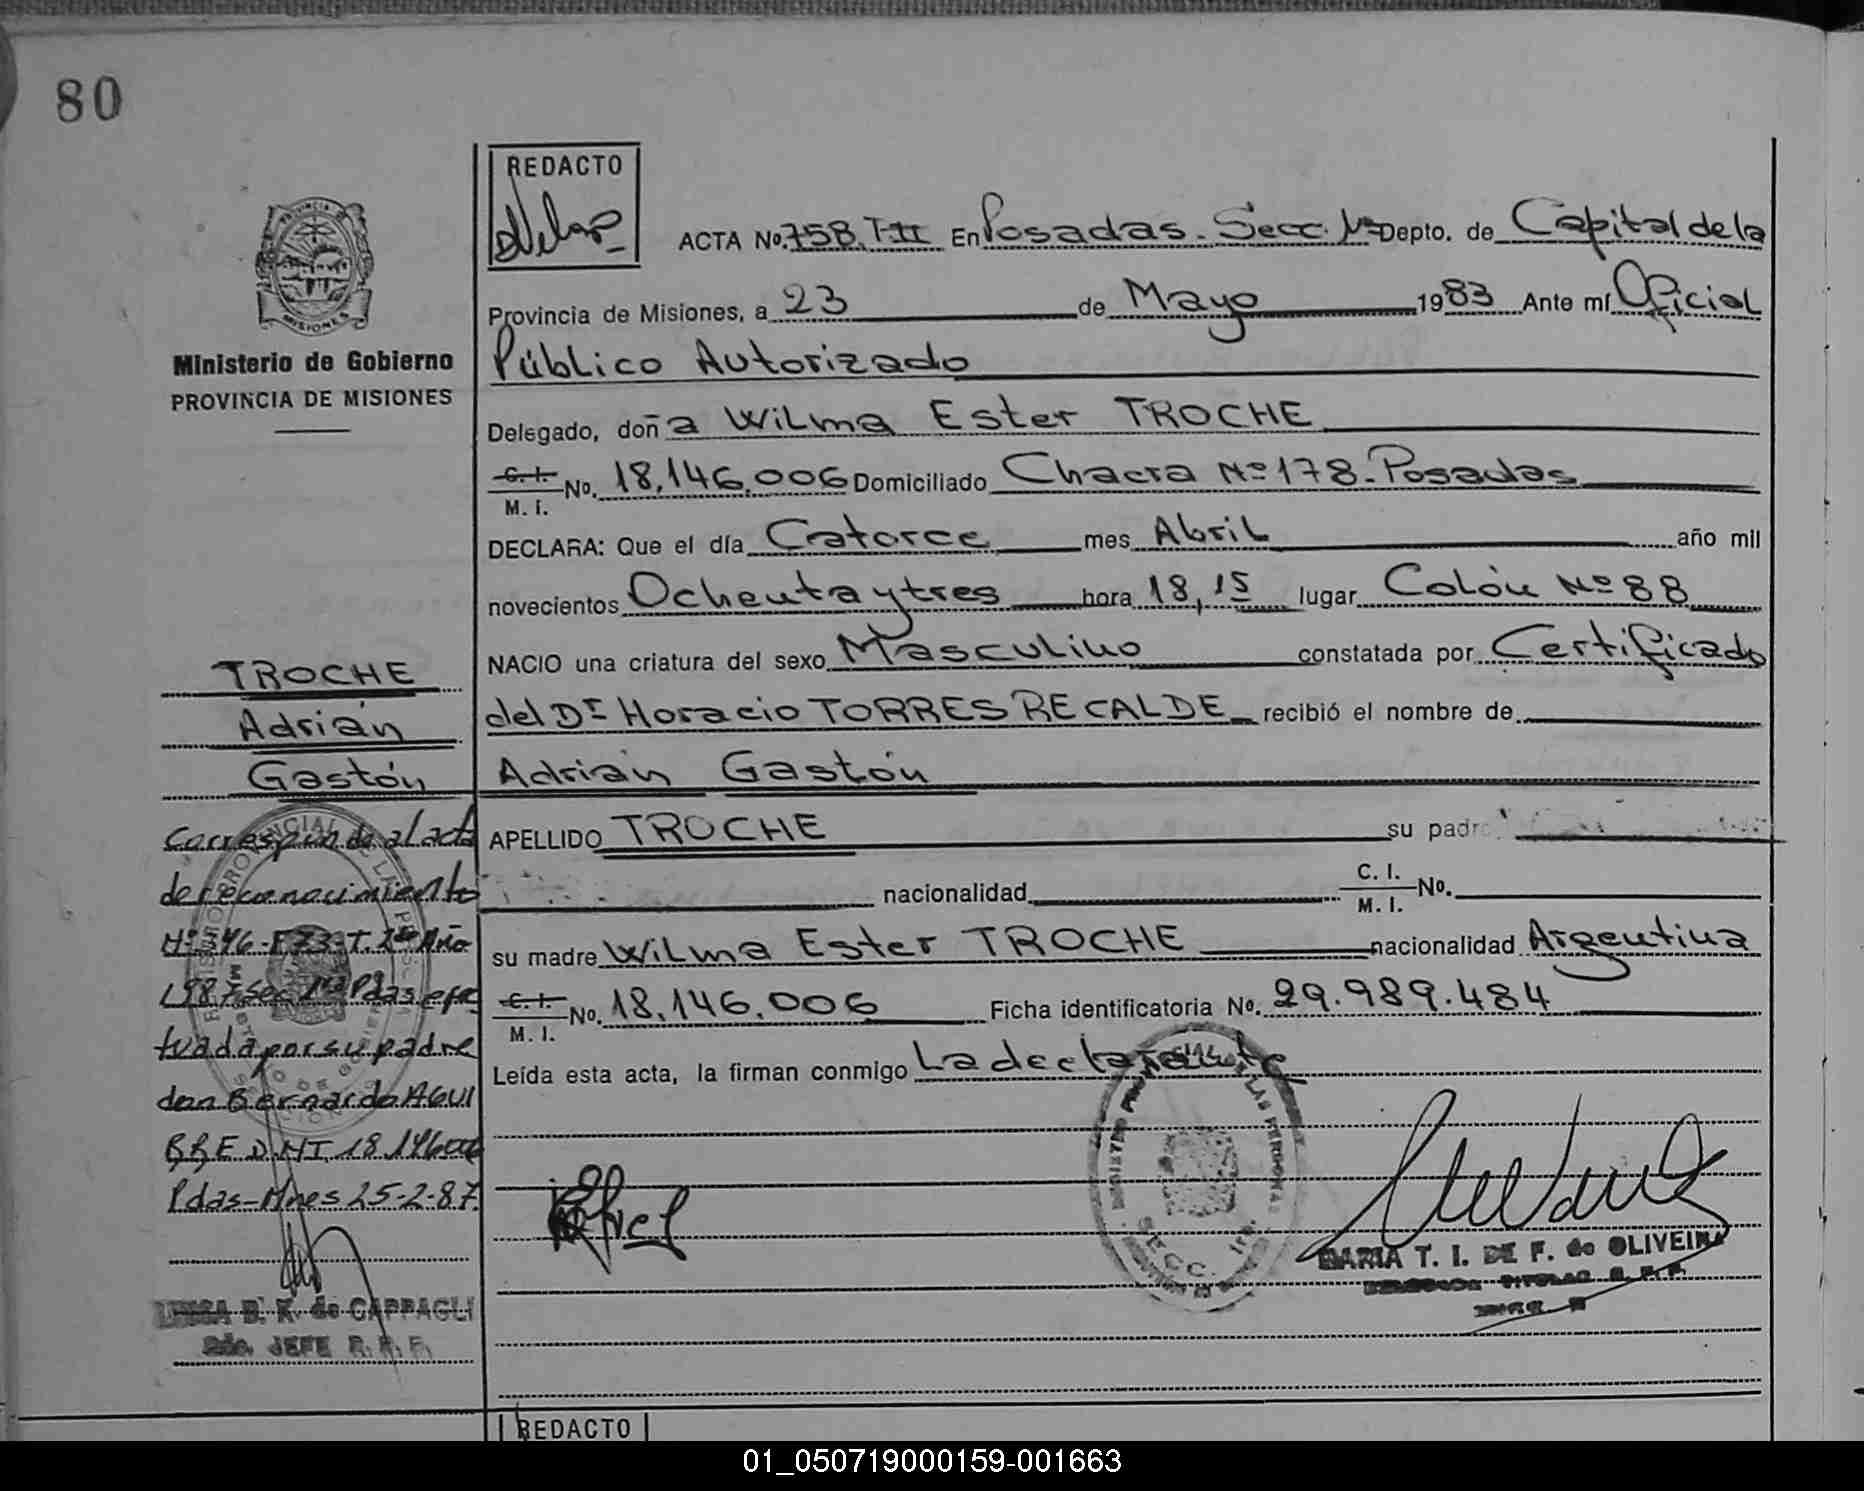 80
REDACTO
ACTA No. 758 T-II En Posadas. Secc. 1ª Depto. de Capital de la
Provincia de Misiones, a 23 de Mayo 1983 Ante mí Oficial
Público Autorizado
Delegado, doña Wilma Ester TROCHE
C. I. No. 18.146.006 Domiciliado Chacra Nº 178. Posadas
M. I.
DECLARA: Que el día Catorce mes Abril año mil
novecientos Ochenta y tres hora 18,15 lugar Colón Nº 88
NACIO una criatura del sexo Masculino constatada por Certificado
del Dr Horacio TORRES RECALDE recibió el nombre de
Adrián Gastón
APELLIDO TROCHE su padre
nacionalidad C. I. No.
M. I.
su madre Wilma Ester TROCHE nacionalidad Argentina
C. I. No. 18.146.006 Ficha identificatoria No. 29.989.484
M. I.
Leída esta acta, la firman conmigo La declarante
SECC. 1ra.
MARIA T. I. DE F. de OLIVEIRA
PROVINCIA DE
MISIONES
Ministerio de Gobierno
PROVINCIA DE MISIONES
TROCHE
Adrián
Gastón
Corresponde al acta
de reconocimiento
Nº 346-F 73-T. 1º Año
1987 Sec 1ª Pdas efec
tuada por su padre
don Bernardo AGUI
RRE D.N.I. 18.146006
Pdas-Mnes 25-2-87.
LUISA B. K. de CAPPAGLI
2do. JEFE R. P. P.
REDACTO
01_050719000159-001663